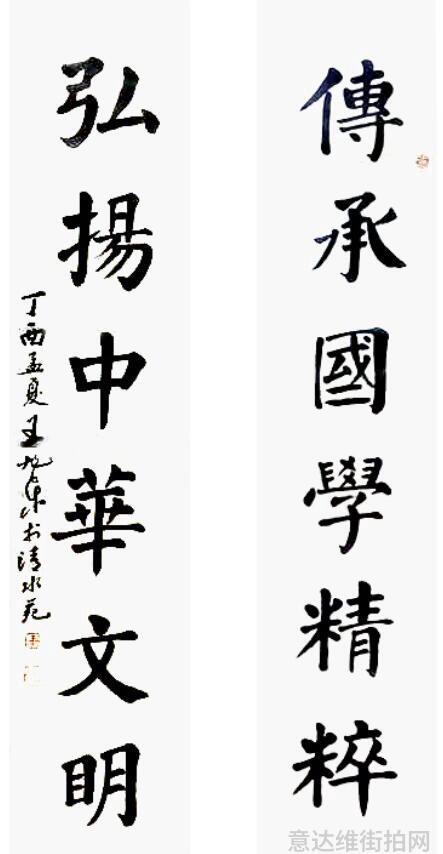 傳承國學精粹
弘揚中華文明
丁酉孟夏王旭东书於清水苑
意达维街拍网